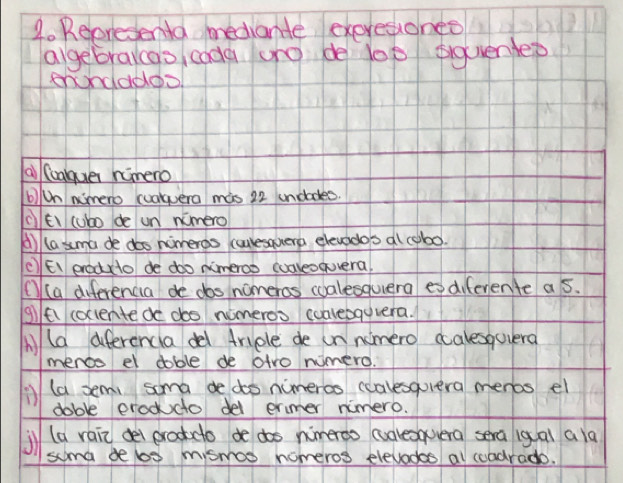 2. Representa mediante expresiones
algebraicas, cada uno de los siguientes
enunciados
a) Cualquier número
b) Un número cualquiera más 22 unidades.
c) El cubo de un número
d) La suma de dos números cualesquiera elevados al cubo.
e) El producto de dos números cualesquiera.
f) La diferencia de dos números cualesquiera es diferente a 5.
g) El cociente de dos números cualesquiera.
h) La diferencia del triple de un número cualesquiera
menos el doble de otro número.
i) La semi suma de dos números cualesquiera menos el
doble producto del primer número.
j) La raíz del producto de dos números cualesquiera será igual a la
suma de los mismos números elevados al cuadrado.